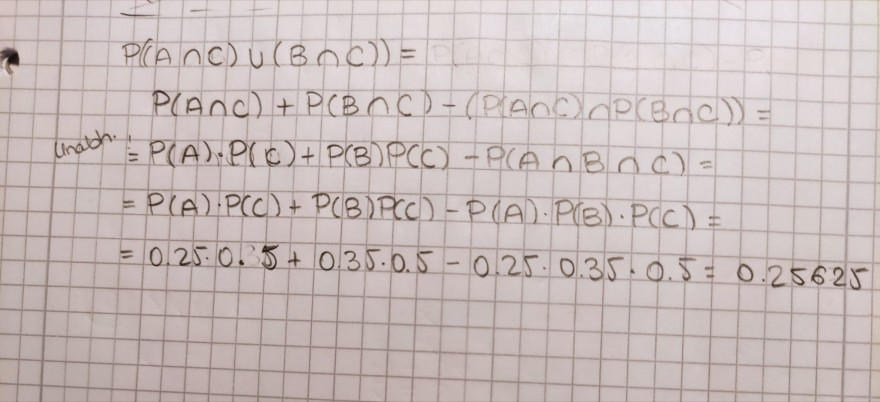 P((A∩C)∪(B∩C)) =
P(A∩C) + P(B∩C) - (P(A∩C)∩P(B∩C)) =
Unabh. != P(A)·P(C) + P(B)P(C) - P(A∩B∩C) =
= P(A)·P(C) + P(B)P(C) - P(A)·P(B)·P(C) =
= 0.25·0.5 + 0.35·0.5 - 0.25·0.35·0.5 = 0.25625